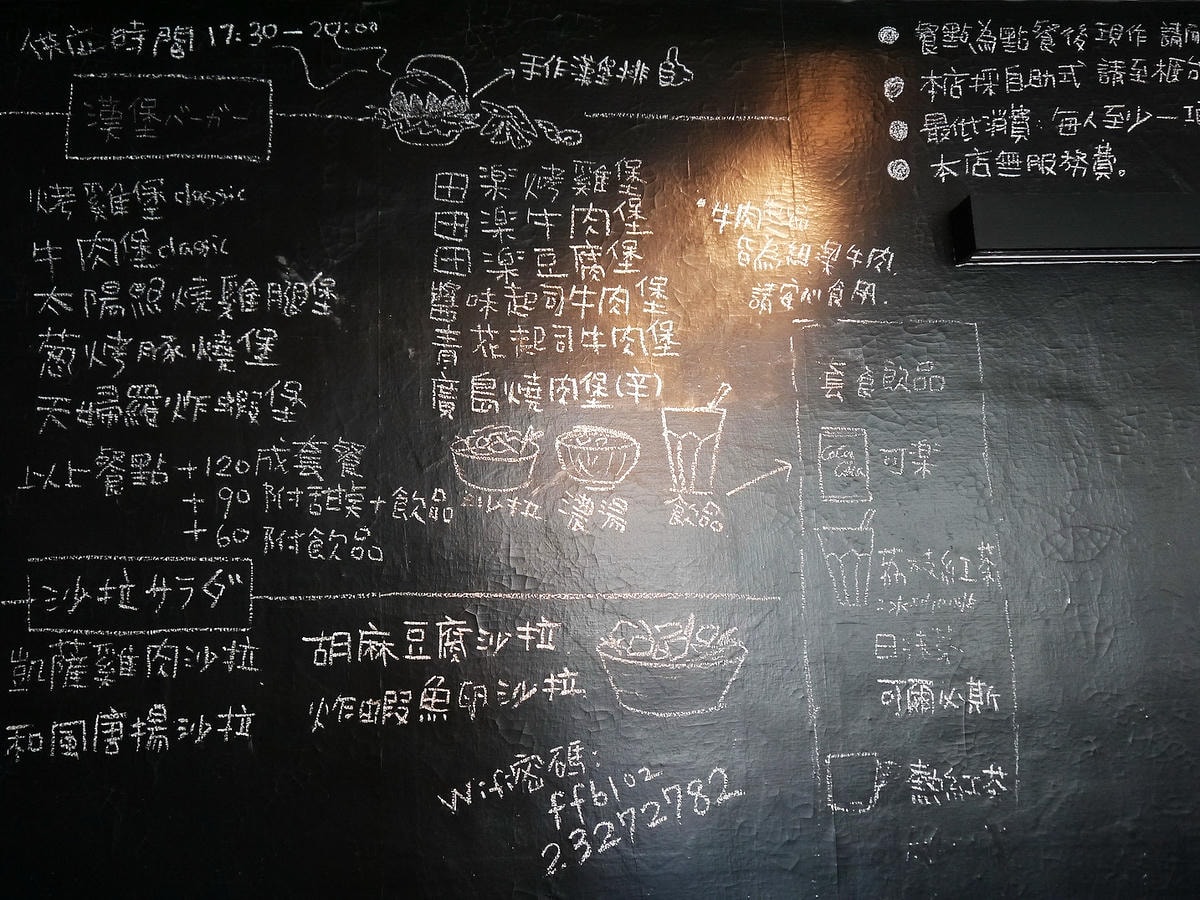 供應時間 17:30—20:00
漢堡バーガー
手作漢堡排
烤雞堡classic
牛肉堡classic
太陽照燒雞腿堡
蔥烤豚燒堡
天婦羅炸蝦堡
田楽烤雞堡
田楽牛肉堡
田楽豆腐堡
醬味起司牛肉堡
青花起司牛肉堡
廣島燒肉堡(辛)
以上餐點+120成套餐
+90附甜點+飲品
+60附飲品
沙拉
濃湯
飲品
沙拉サラダ
凱薩雞肉沙拉
和風唐揚沙拉
胡麻豆腐沙拉
炸蝦魚卵沙拉
Wifi密碼:
ffb102
23272782
餐點為點餐後現作 請
本店採自助式 請至櫃
最低消費:每人至少一
本店無服務費。
牛肉
皆為紐澳牛肉
請安心食用.
套食飲品
Coca Cola
可楽
荔枝紅茶
可爾必斯
熱紅茶